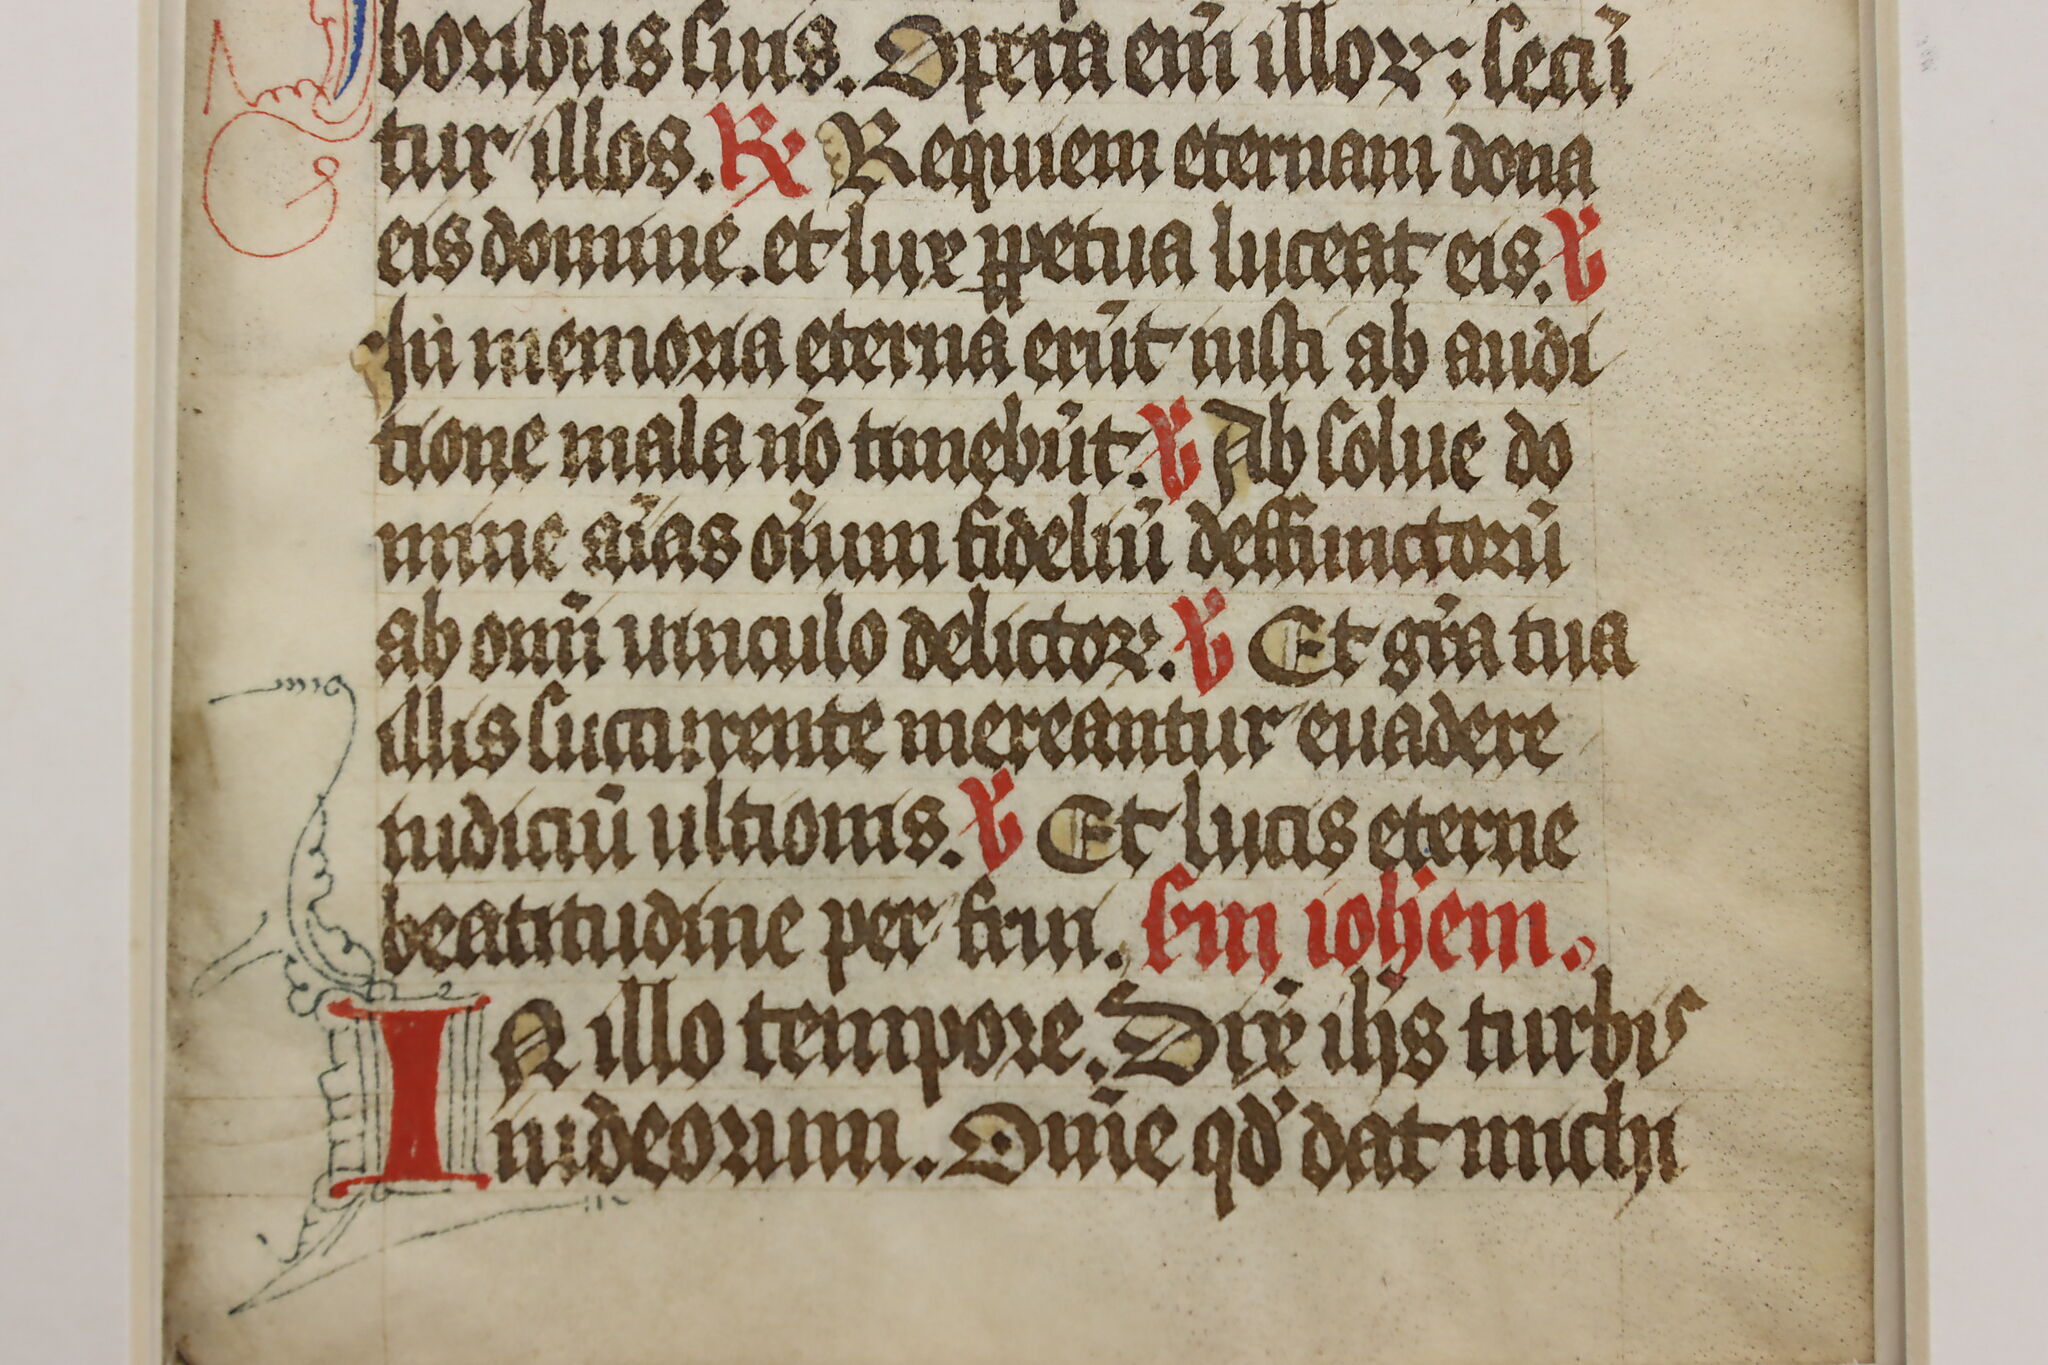 boribus suis. Opera em̄ illoꝝ: secū
tur illos. ℟ Requiem eternam dona
eis domine. et lux ꝑpetua luceat eis. ℣
In memoria eterna erūt iusti ab audi
tione mala nō timebūt. ℣ Absolue do
mine aīas oīum fideliū deffunctorū
ab omī uinculo delictoꝝ. ℣ Et grīa tua
illis succurente mereantur euadere
iudiciū ultionis. ℣ Et lucis eterne
beatitudine per frui. sm̄ ioħem.
IN illo tempore. Dix̄ ihs̄ turbis
iudeorum. Om̄e qd̄ dat michi